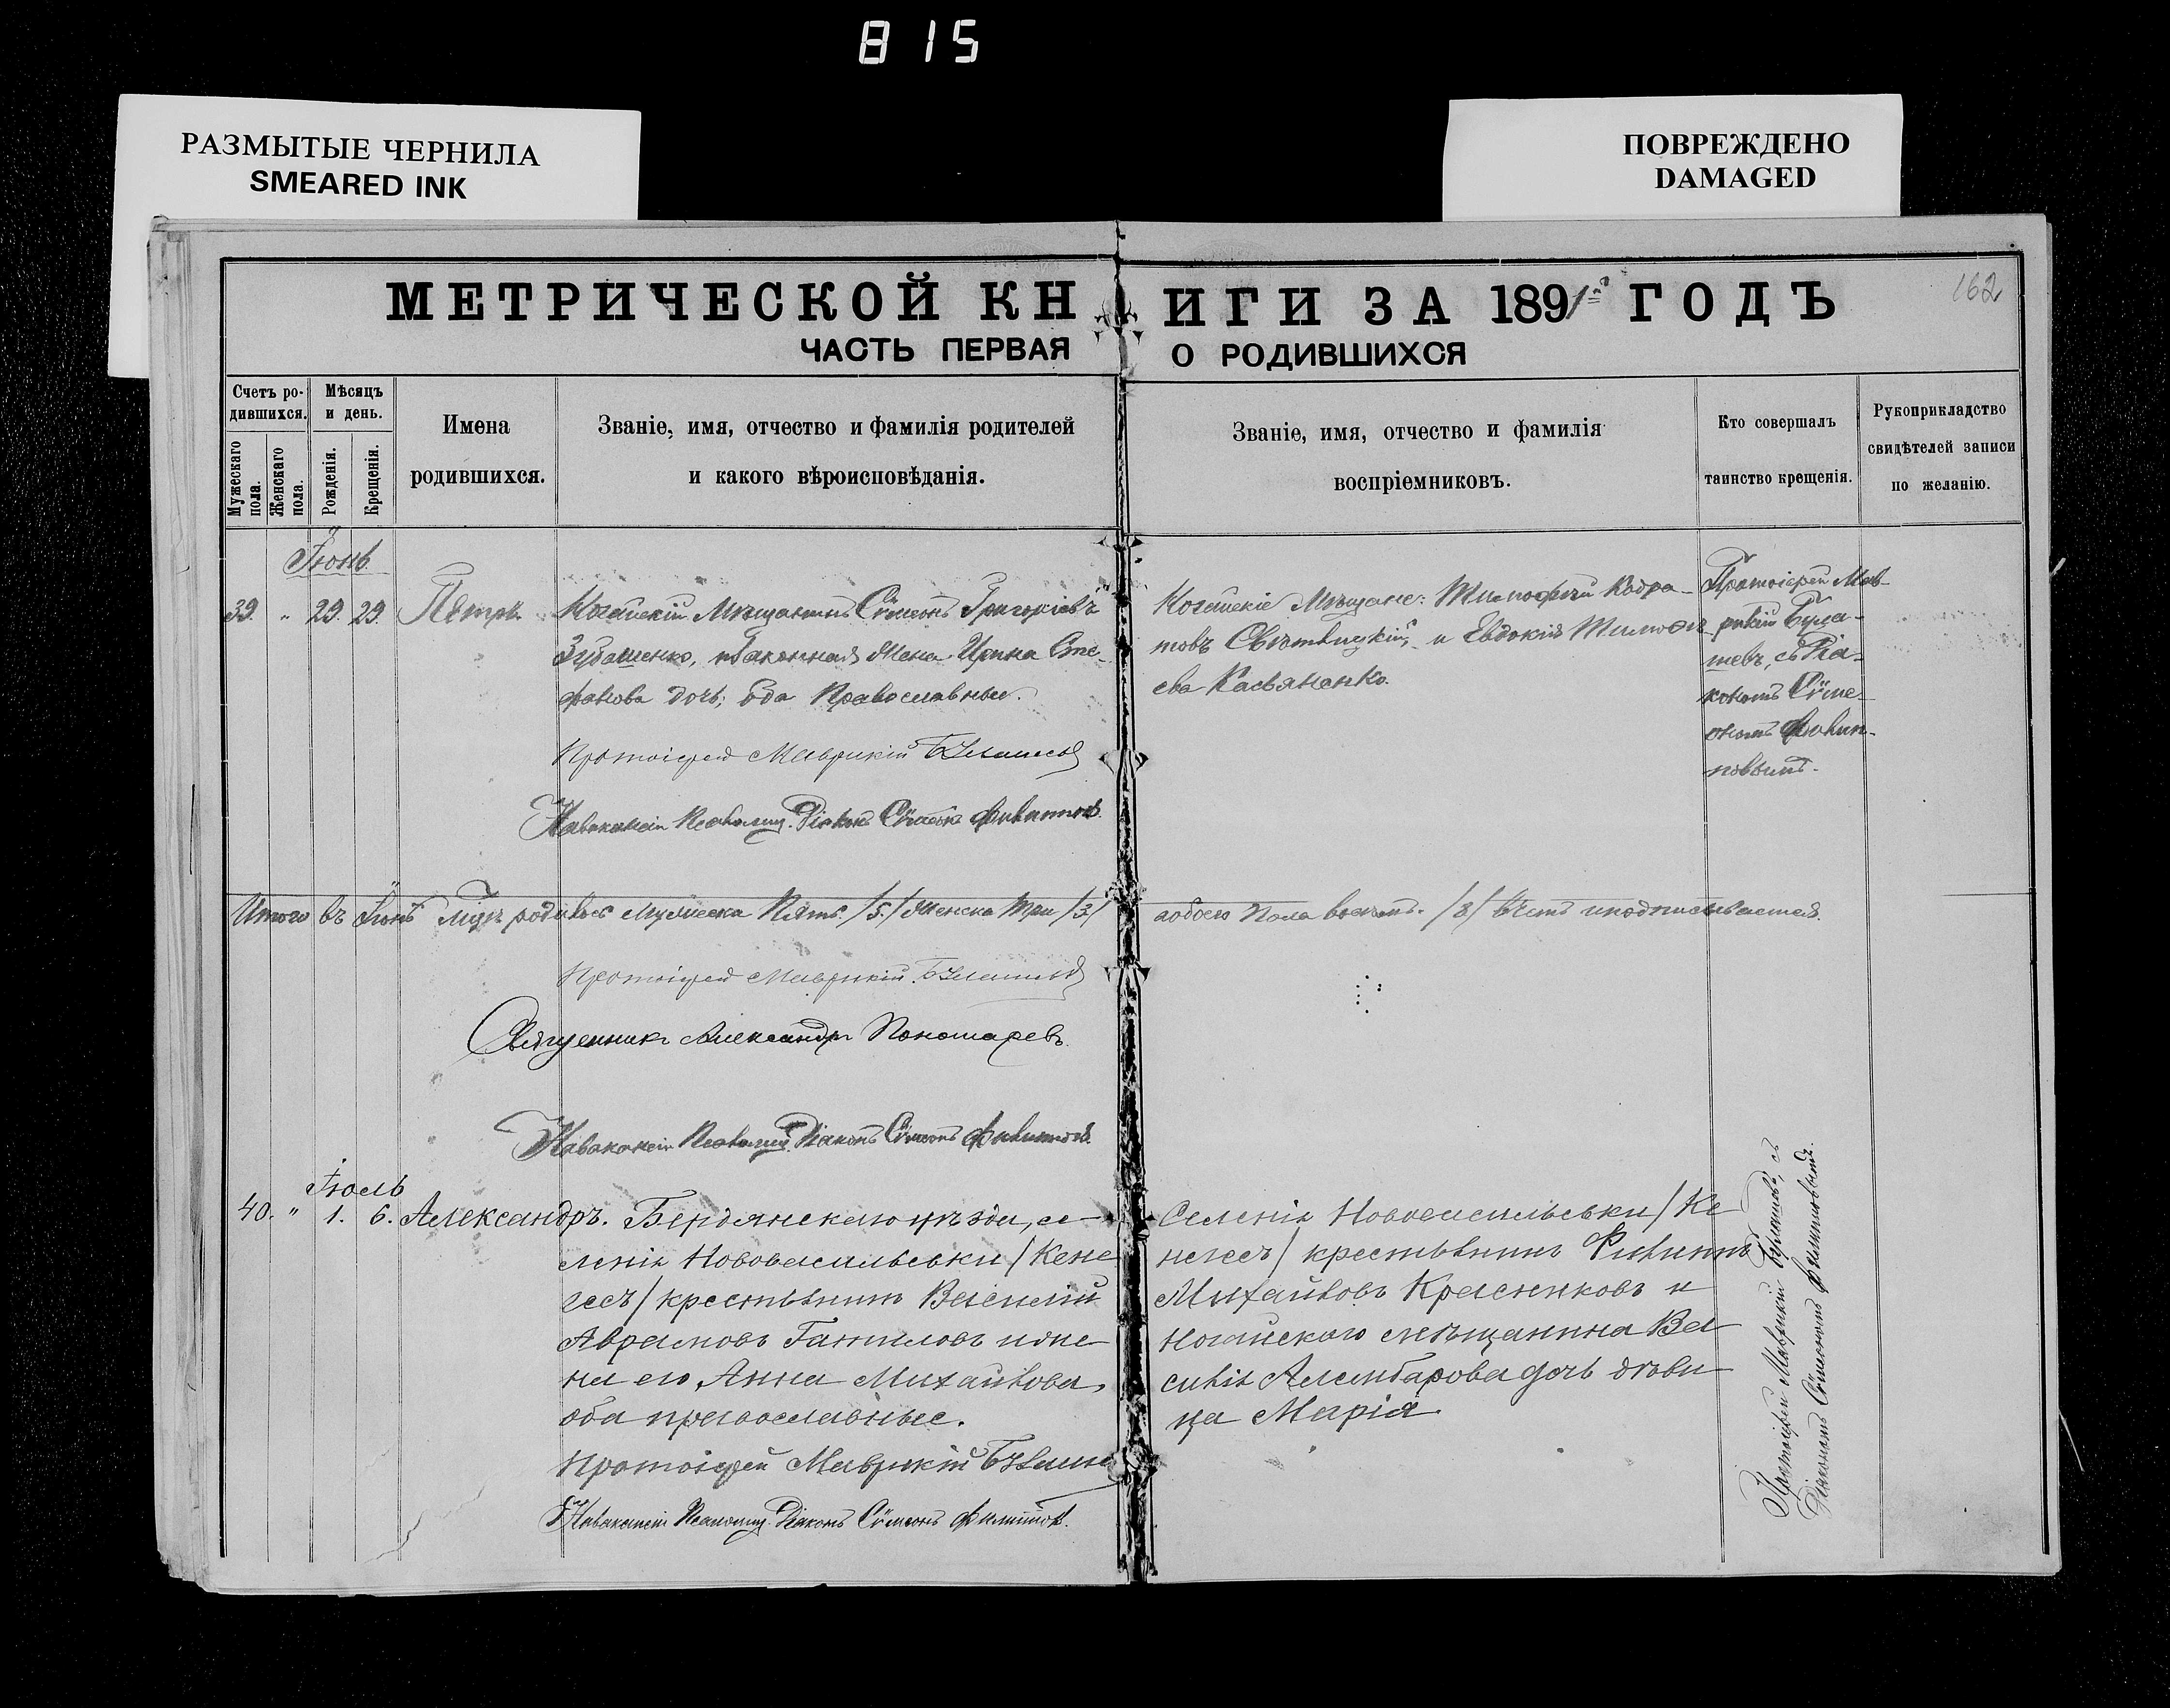 815
РАЗМЫТЫЕ ЧЕРНИЛА
SMEARED INK
ПОВРЕЖДЕНО
DAMAGED
162
МЕТРИЧЕСКОЙ КНИГИ ЗА 1891й ГОДЪ
ЧАСТЬ ПЕРВАЯ О РОДИВШИХСЯ
Счетъ ро-
дившихся.
Мужескаго пола.
Женскаго пола.
Мѣсяцъ
и день.
Рожденія.
Крещенія.
Имена
родившихся.
Званіе, имя, отчество и фамилія родителей
и какого вѣроисповѣданія.
Званіе, имя, отчество и фамилія
воспріемниковъ.
Кто совершалъ
таинство крещенія.
Рукоприкладство
свидѣтелей записи
по желанію.
Іюнь
39. " 29. 29. Петръ
Ногайскій Мѣщанинъ Сѵмеонъ Григоріевъ
Зубашенко, и законная Жена Ирина Сте-
фанова дочь; оба Православные.
Протоіерей Маврикій
Псаломщ. Діаконъ Сѵмеонъ Филипповъ.
Ногайскіе Мѣщане: Тимофей Кодра-
товъ и Евдокія Тимофе
ева Касьяненко.
Протоіерей Мав-
рикій
съ Діа-
кономъ Сѵме-
ономъ Филип-
повымъ.
Итого въ Іюнѣ м-цѣ родилось Мужеска Пять /5/ Женска Три /3/ а обоего Пола восемь. /8/ въ чемъ и подписываемся.
Протоіерей Маврикій
Священникъ Александръ Пономаревъ.
Псаломщ. Діаконъ Сѵмеонъ Филипповъ.
Іюль
40. " 1. 6. Александръ.
Бердянскаго уѣзда, се-
ленія Нововасильевки /Кене
гесъ/ крестьянинъ Василій
Аврамовъ Гатиловъ и же
на его Анна Михайлова,
оба православные.
Протоіерей Маврикій
Псаломщ. Діаконъ Сѵмеонъ Филипповъ.
Селенія Нововасильевки /Ке
негесъ/ крестьянинъ Филиппъ
Михайловъ Красниковъ и
Ногайскаго мѣщанина Ва
силія дочь дѣви
ца Марія
Протоіерей Маврикій съ
Діакономъ Сѵмеономъ Филипповымъ.